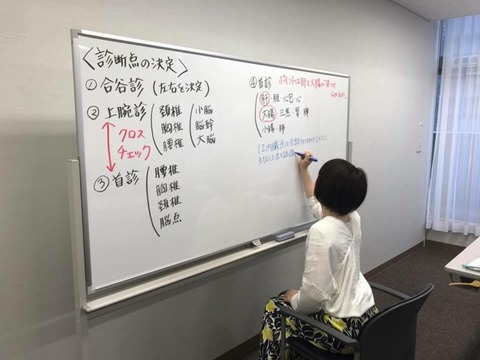 〈診断点の決定〉
① 合谷診 (左右を決定)
② 上腕診
頚椎
胸椎
腰椎
小脳
脳幹
大脳
クロス
チェック
③ 首診
腰椎
胸椎
頚椎
脳点
④ 首診
肝・胆・心包・心
大腸・三焦・腎・脾
小腸・肺